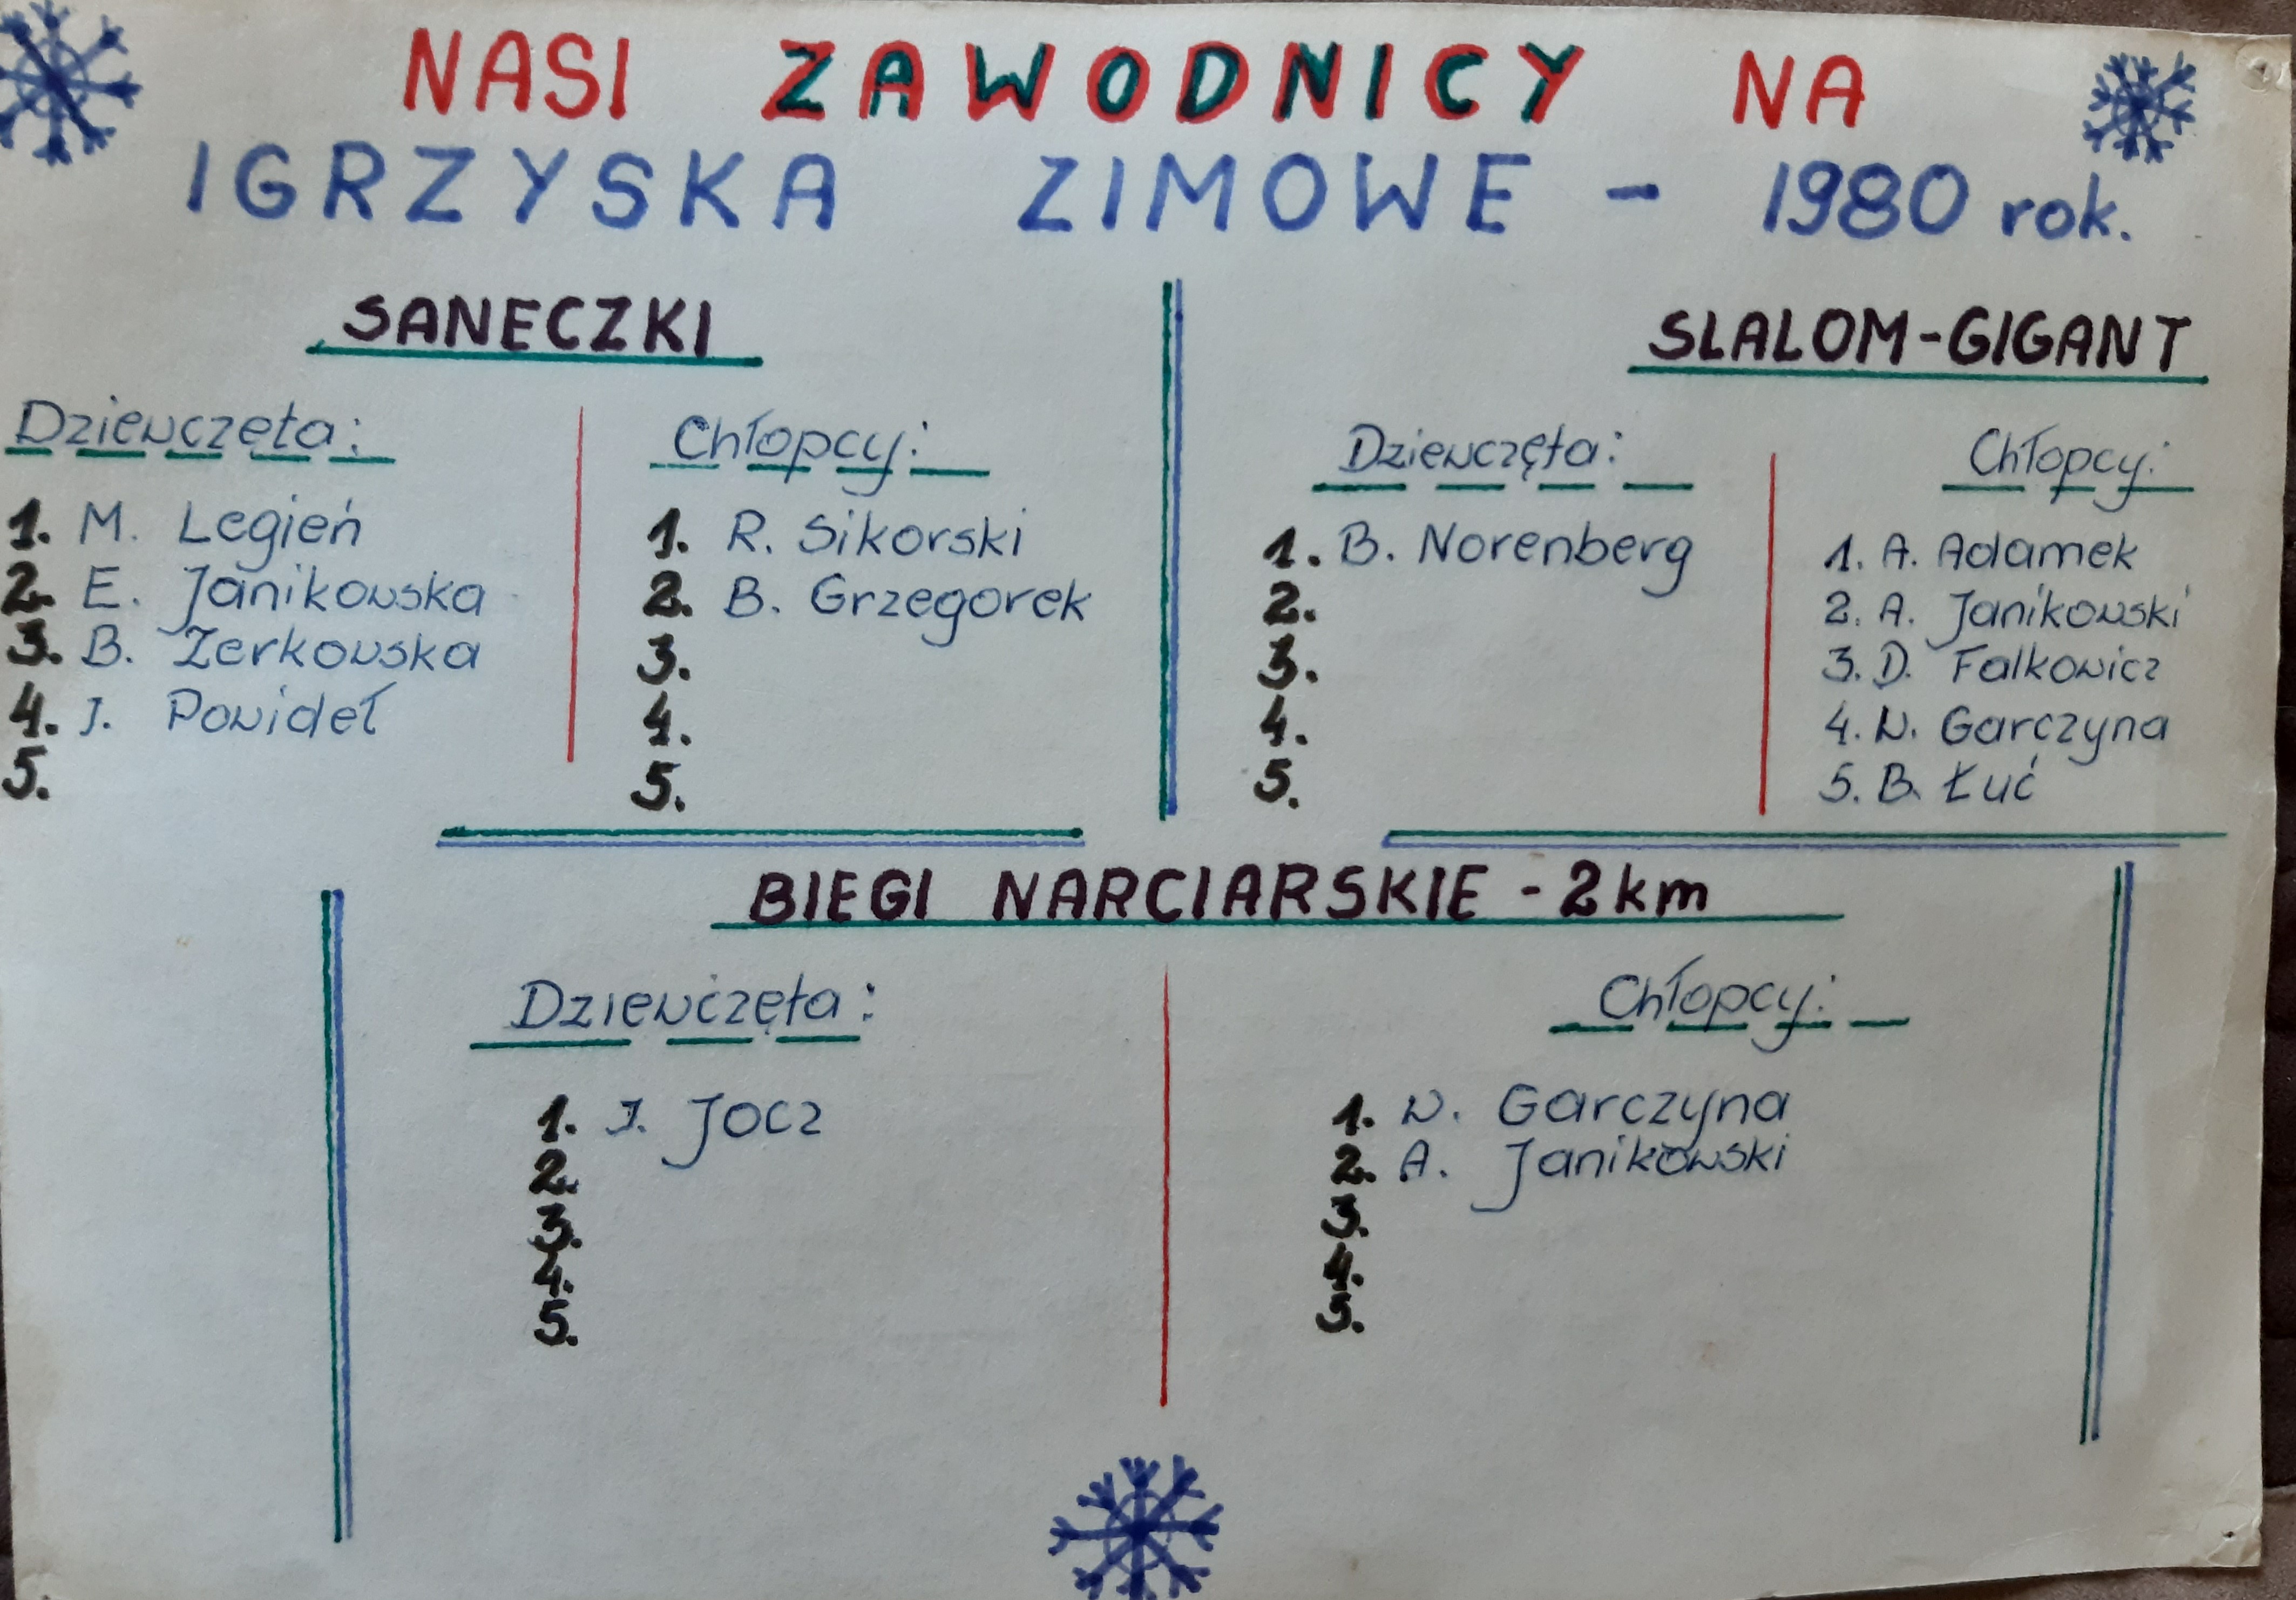 NASI ZAWODNICY NA
IGRZYSKA ZIMOWE - 1980 rok.
SANECZKI
Dziewczęta:
1. M. Legień
2. E. Janikowska
3. B. Zerkowska
4. J. Powideł
5.
Chłopcy:
1. R. Sikorski
2. B. Grzegorek
3.
4.
5.
SLALOM-GIGANT
Dziewczęta:
1. B. Norenberg
2.
3.
4.
5.
Chłopcy:
1. A. Adamek
2. A. Janikowski
3. D. Falkowicz
4. W. Garczyna
5. B. Łuć
BIEGI NARCIARSKIE - 2km
Dziewczęta:
1. J. Jocz
2.
3.
4.
5.
Chłopcy:
1. W. Garczyna
2. A. Janikowski
3.
4.
5.